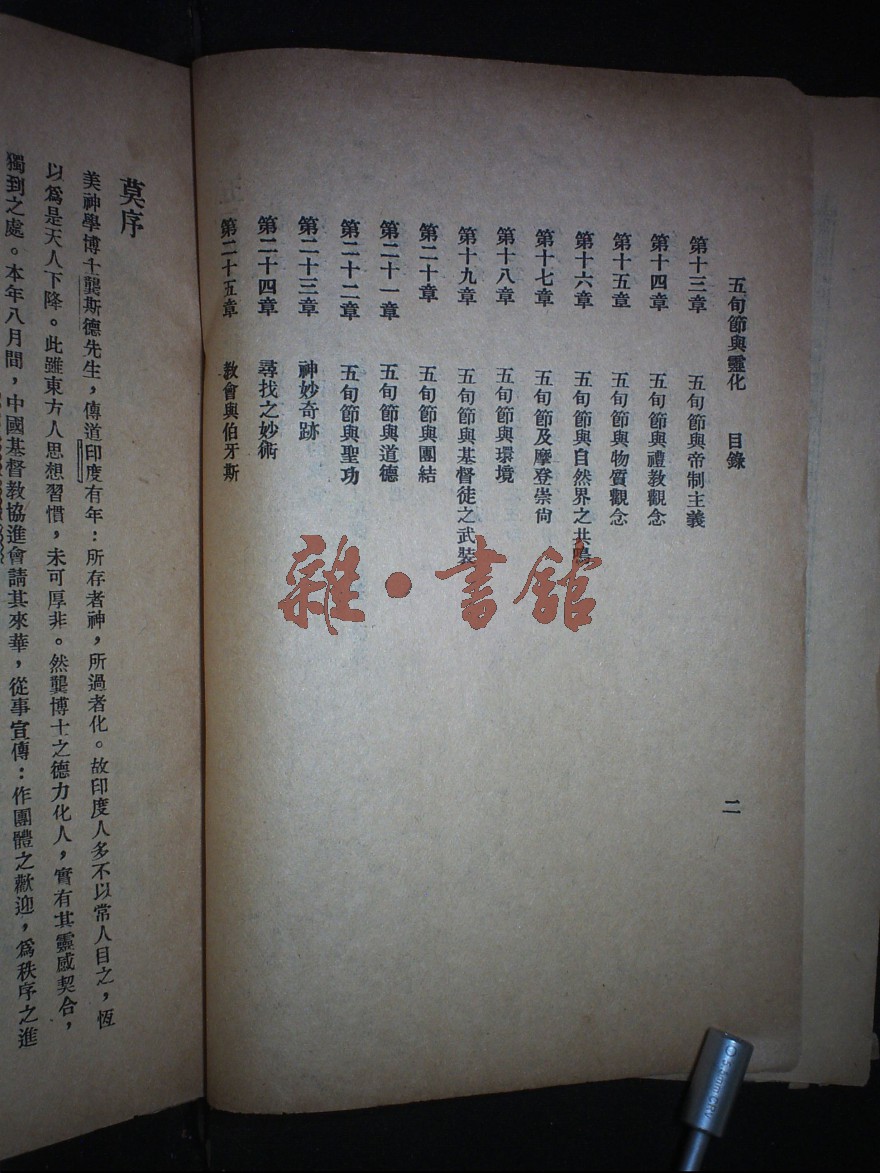 五旬節與靈化　目錄
二
第十三章　五旬節與帝制主義
第十四章　五旬節與禮教觀念
第十五章　五旬節與物質觀念
第十六章　五旬節與自然界之共鳴
第十七章　五旬節及摩登崇尚
第十八章　五旬節與環境
第十九章　五旬節與基督徒之武裝
第二十章　五旬節與團結
第二十一章　五旬節與道德
第二十二章　五旬節與聖功
第二十三章　神妙奇跡
第二十四章　尋找之妙術
第二十五章　教會與伯牙斯
雜·書館
莫序
美神學博士龔斯德先生，傳道印度有年：所存者神，所過者化。故印度人多不以常人目之，恆
以爲是天人下降。此雖東方人思想習慣，未可厚非。然龔博士之德力化人，實有其靈感契合，
獨到之處。本年八月間，中國基督教協進會請其來華，從事宣傳：作團體之歡迎，爲秩序之進